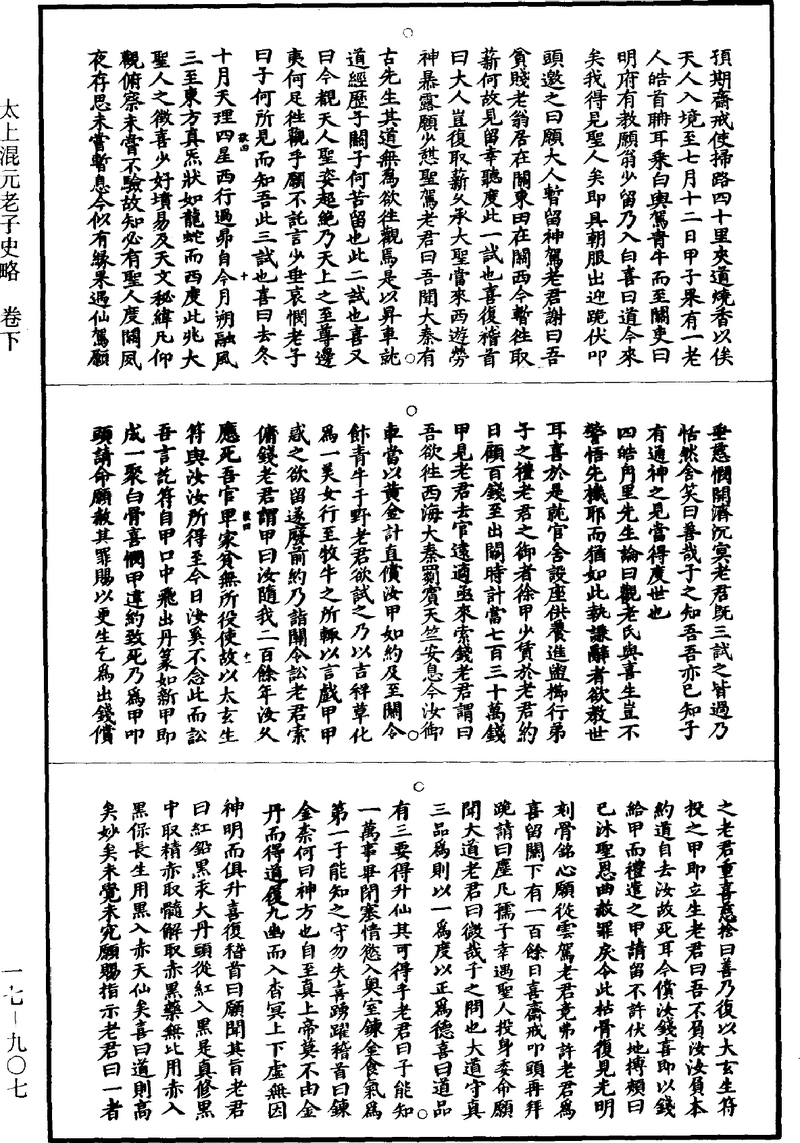 預期齋戒使掃路四十里夾道燒香以俟
天人入境至七月十二日甲子果有一老
人皓首聃耳乘白輿駕青牛而至關吏曰
明府有教願翁少留乃入白喜曰道今來
矣我得見聖人矣即具朝服出迎跪伏叩
頭邀之曰願大人暫留神駕老君謝曰吾
貧賤老翁居在關東田在關西今暫往取
薪何故見留幸聽度此一試也喜復稽首
曰大人豈復取薪久承大聖當來西遊勞
神暴露願少憇聖駕老君曰吾聞大秦有
古先生其道無為欲往觀焉是以昇車就
道經歷子關子何苦留也此二試也喜又
曰今覩天人聖姿超絶乃天上之至尊邊
夷何足往觀乎願不託言少垂哀憫老子
曰子何所見而知吾此三試也喜曰去冬
歌四
十
十月天理四星西行過昴自今月朔融風
三至東方真炁狀如龍蛇而西度此兆大
聖人之徵喜少好墳易及天文秘緯凡仰
觀俯察未嘗不驗故知必有聖人度關夙
夜存思未嘗暫息今似有緣果遇仙駕願
垂慈憫開濟沉冥老君既三試之皆過乃
恬然含笑曰善哉子之知吾吾亦已知子
有通神之見當得度世也
四皓門里先生論曰觀老氏與喜生豈不
警悟先機耶而猶如此執謙辭者欲教世
耳喜於是就官舍設座供養進盥櫛行弟
子之禮老君之御者徐甲少賃於老君約
日顧百錢至出關時計當七百三十萬錢
甲見老君去官遠適亟來索錢老君謂曰
吾欲往西海大秦罽賓天竺安息令汝御
車當以黃金計直償汝甲如約及至關令
飰青牛于野老君欲試之乃以吉祥草化
為一美女行至牧牛之所輒以言戲甲甲
惑之欲留遂廢前約乃詣關令訟老君索
傭錢老君謂甲曰汝隨我二百餘年汝久
歌四
十一
應死吾官卑家貧無所役使故以太玄生
符與汝汝所得至今日汝奚不念此而訟
吾言訖符自甲口中飛出丹篆如新甲即
成一聚白骨喜憫甲違約致死乃為甲叩
頭請命願赦其罪賜以更生乞為出錢償
之老君重喜慈捨曰善乃復以太玄生符
投之甲即立生老君曰吾不負汝汝負本
約道自去汝故死耳今償汝錢喜即以錢
給甲而禮遣之甲請留不許伏地搏頰曰
已沐聖恩曲赦罪戾令此枯骨復見光明
刻骨銘心願從雲駕老君竟弗許老君為
喜留關下有一百餘日喜齋戒叩頭再拜
跪請曰塵凡孺子幸遇聖人投身委命願
聞大道老君曰微哉子之問也大道守真
三品為則以一為度以正為德喜曰道品
有三要得升仙其可得乎老君曰子能知
一萬事畢閉塞情慾入奧室鍊金食氣為
第一子能知之守勿失喜踴躍稽首曰鍊
金柰何曰神方也自至真上帝莫不由金
丹而得道復九幽而入杳冥上下虛無因
神明而俱升喜復稽首曰願聞其旨老君
曰紅鉛黑汞大丹頭從紅入黑是真修黑
中取精赤取髓解取赤黑藥無比用赤入
黑保長生用黑入赤天仙矣喜曰道則高
矣妙矣未覺未究願賜指示老君曰一者
太上混元老子史略　卷下
一七—九〇七